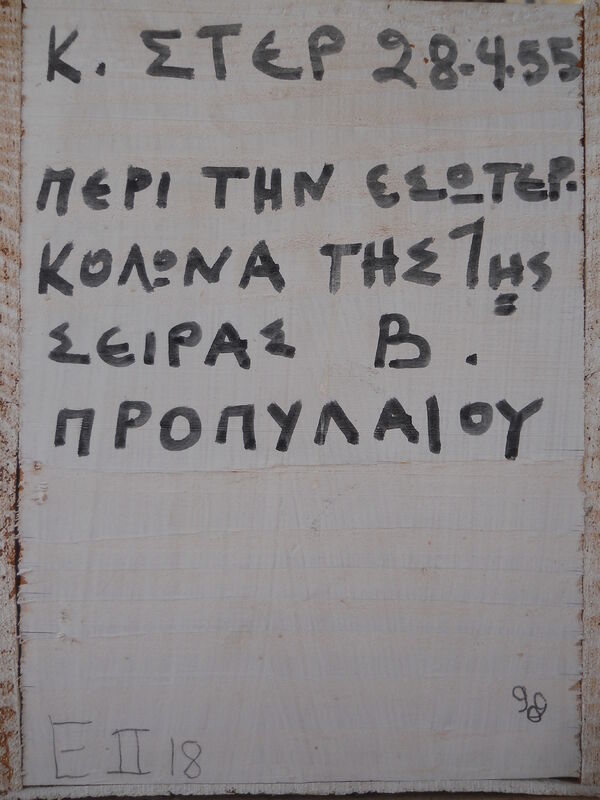 Κ. ΣΤΕΡ 28.4.55
ΠΕΡΙ ΤΗΝ ΕΣΩΤΕΡ.
ΚΟΛΩΝΑ ΤΗΣ 1ης
ΣΕΙΡΑΣ Β.
ΠΡΟΠΥΛΑΙΟΥ
98
Ε II 18